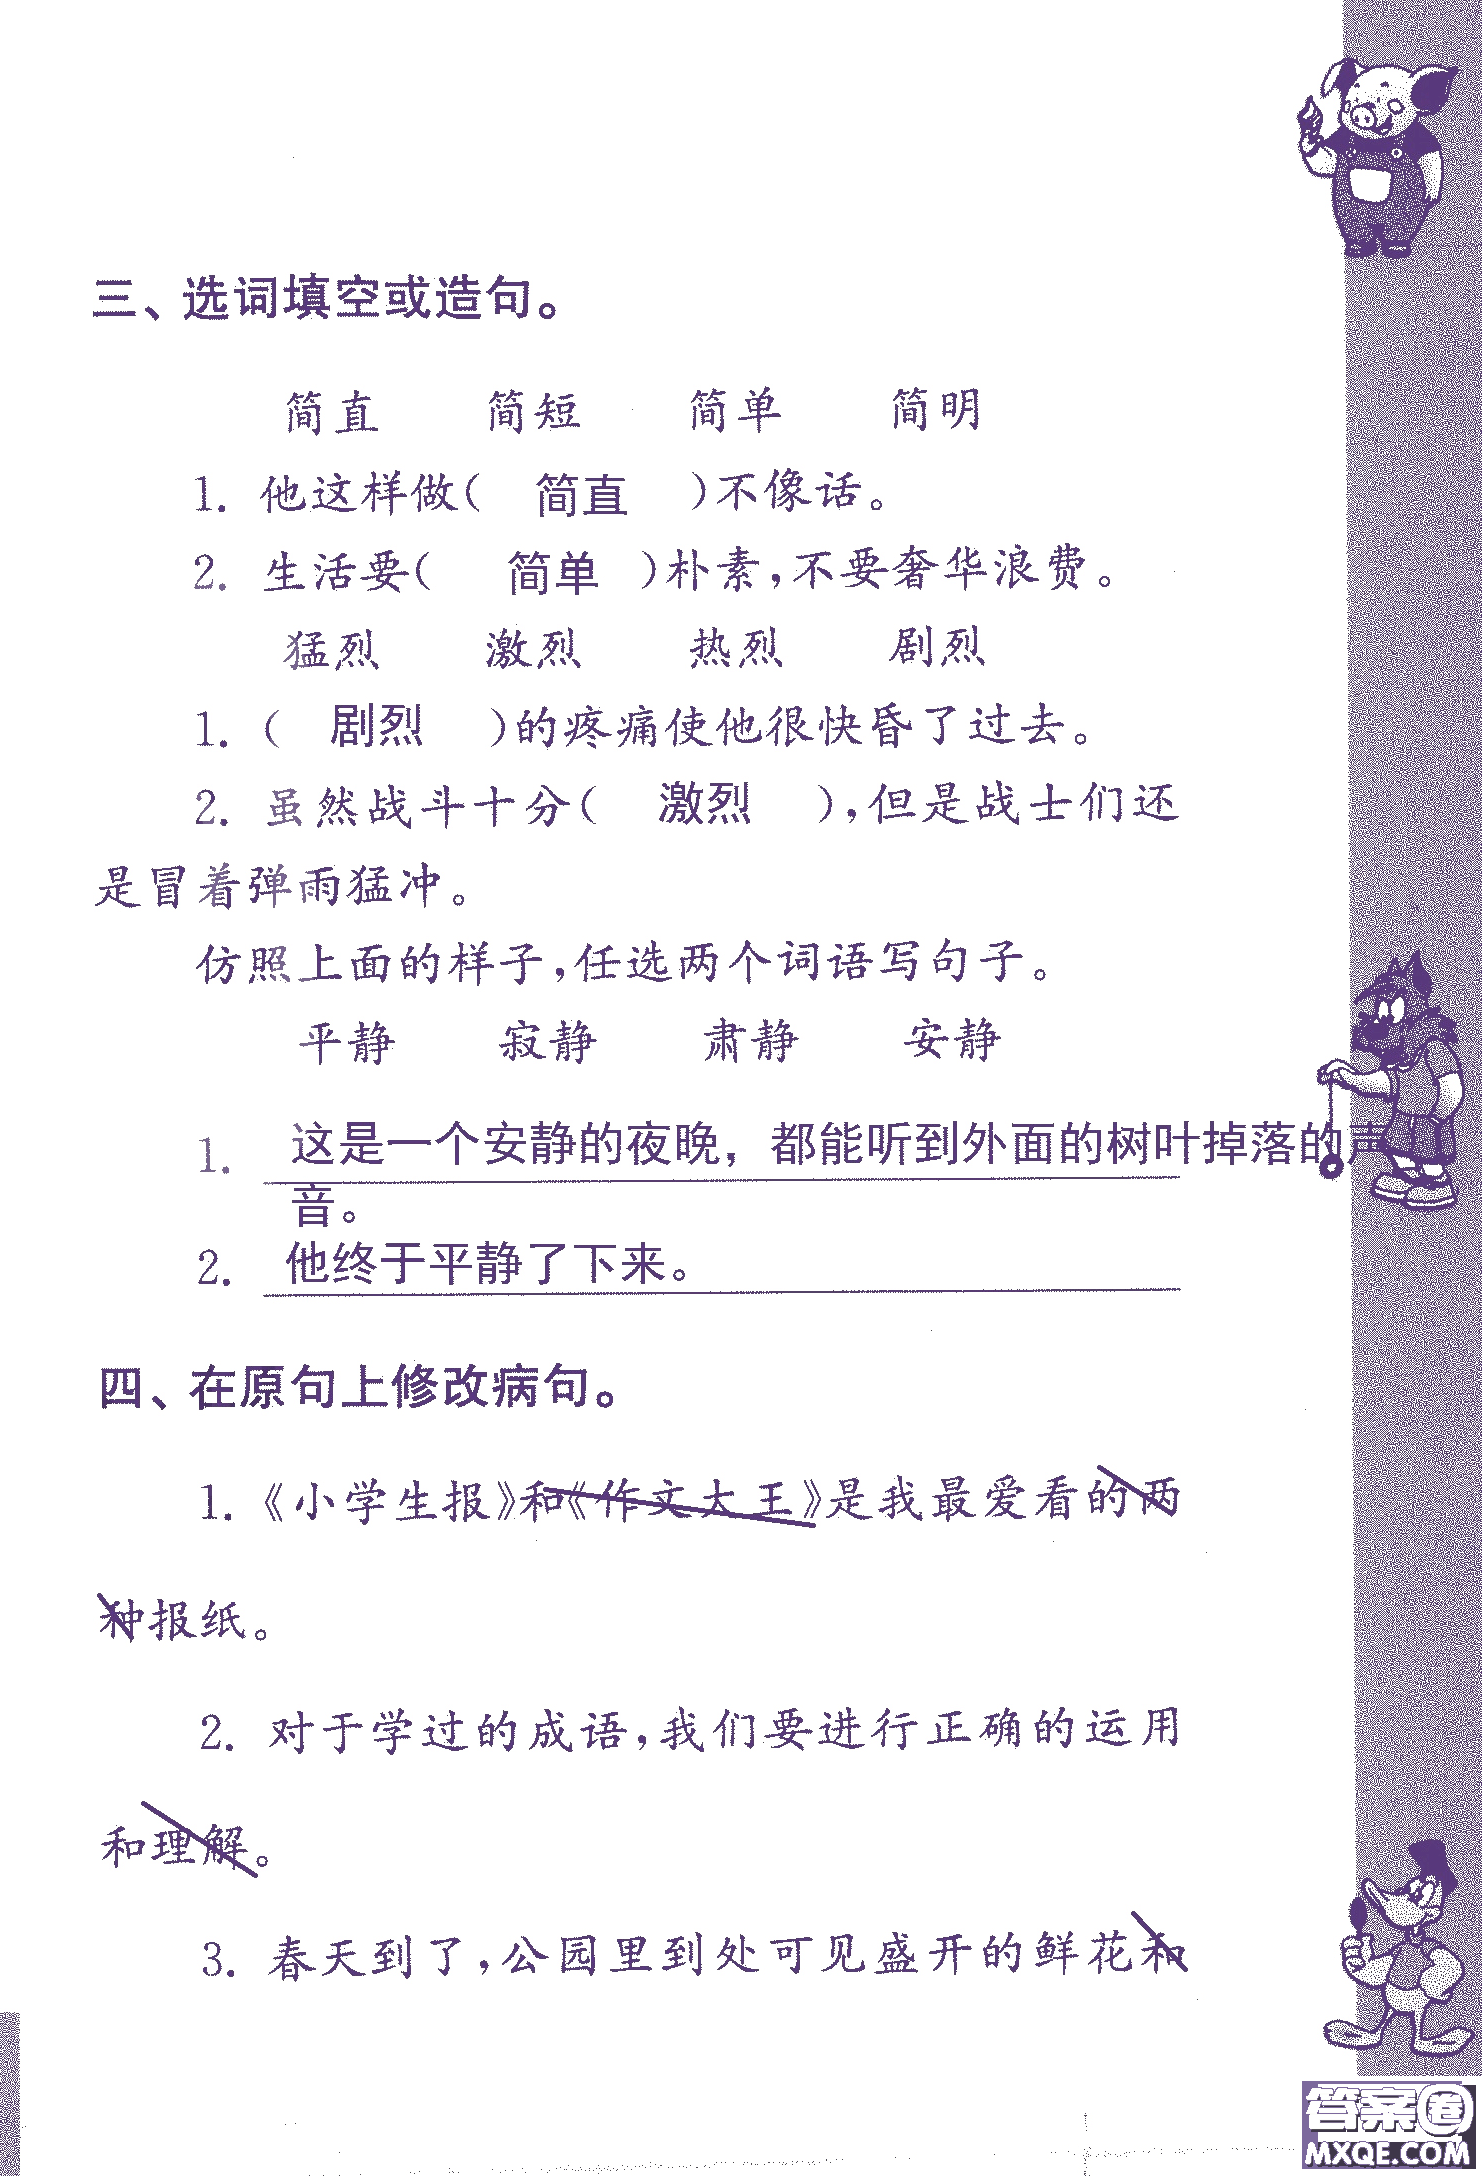 三、选词填空或造句。
简直 简短 简单 简明
1. 他这样做( 简直 )不像话。
2. 生活要( 简单 )朴素,不要奢华浪费。
猛烈 激烈 热烈 剧烈
1. ( 剧烈 )的疼痛使他很快昏了过去。
2. 虽然战斗十分( 激烈 ),但是战士们还
是冒着弹雨猛冲。
仿照上面的样子,任选两个词语写句子。
平静 寂静 肃静 安静
1. 这是一个安静的夜晚，都能听到外面的树叶掉落的声
音。
2. 他终于平静了下来。
四、在原句上修改病句。
1.《小学生报》和《作文大王》是我最爱看的两
种报纸。
2. 对于学过的成语,我们要进行正确的运用
和理解。
3. 春天到了,公园里到处可见盛开的鲜花和
答案圈
MXQE.COM